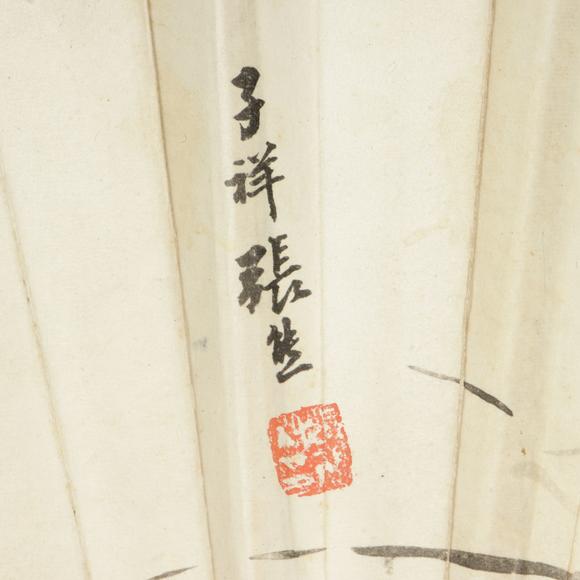 子祥張熊